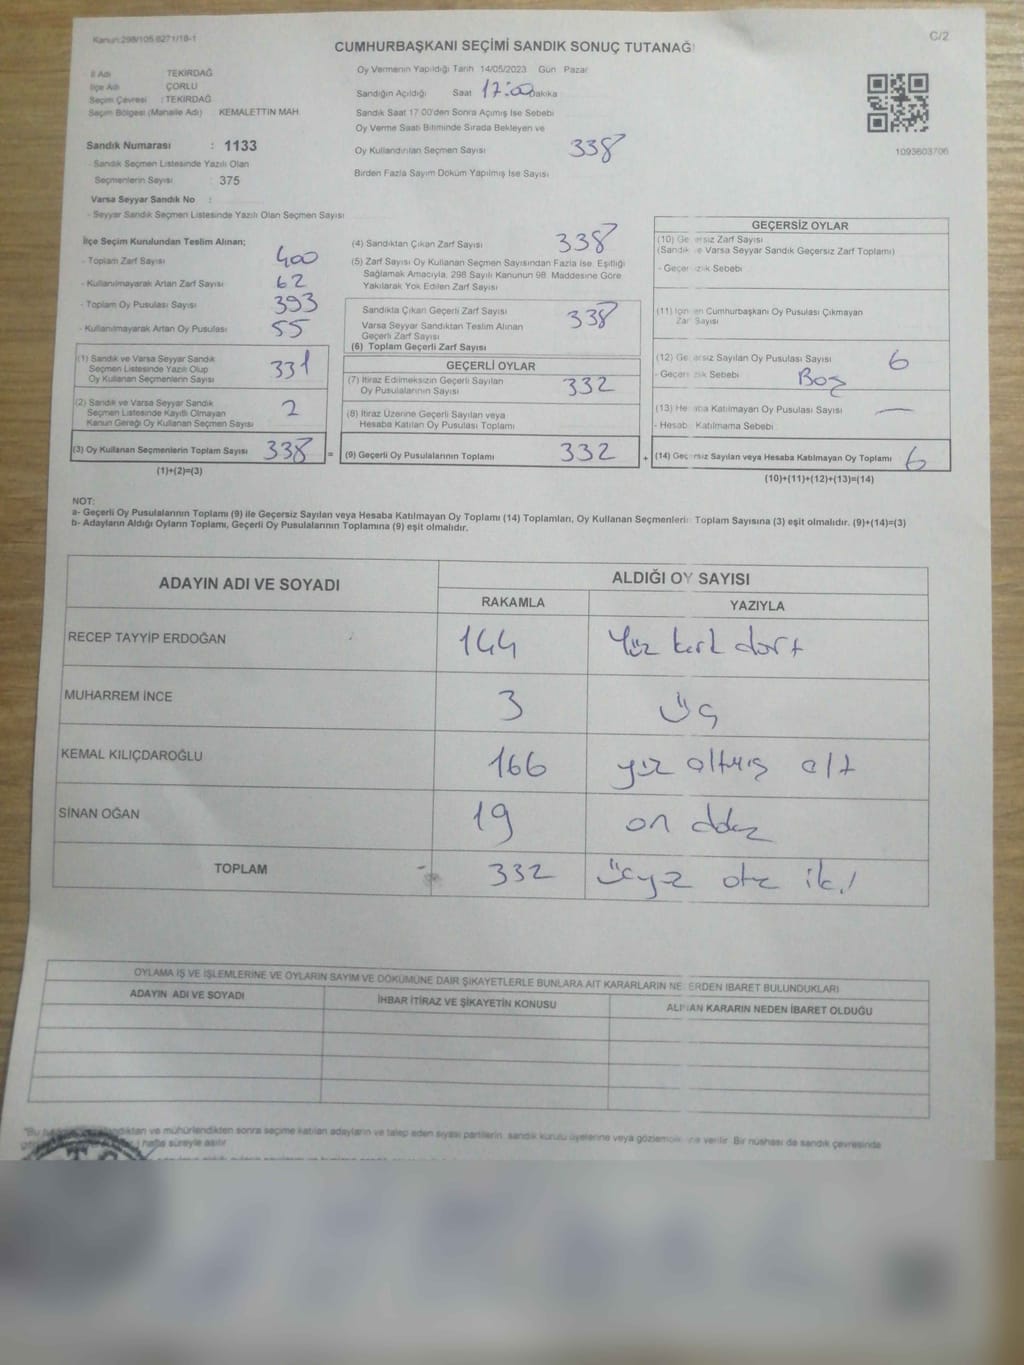 Kanun:298/105,6271/18-1
C/2
CUMHURBAŞKANI SEÇİMİ SANDIK SONUÇ TUTANAĞI
İl Adı TEKİRDAĞ
İlçe Adı ÇORLU
Seçim Çevresi : TEKİRDAĞ
Seçim Bölgesi (Mahalle Adı) KEMALETTİN MAH.
Sandık Numarası : 1133
- Sandık Seçmen Listesinde Yazılı Olan
Seçmenlerin Sayısı : 375
Varsa Seyyar Sandık No :
- Seyyar Sandık Seçmen Listesinde Yazılı Olan Seçmen Sayısı
Oy Vermenin Yapıldığı Tarih 14/05/2023 Gün Pazar
Sandığın Açıldığı Saat 17:00 Dakika
Sandık Saat 17.00'den Sonra Açımış İse Sebebi
Oy Verme Saati Bitiminde Sırada Bekleyen ve
Oy Kullandırılan Seçmen Sayısı 338
Birden Fazla Sayım Döküm Yapılmış İse Sayısı
1093603706
İlçe Seçim Kurulundan Teslim Alınan;
- Toplam Zarf Sayısı 400
- Kullanılmayarak Artan Zarf Sayısı 62
- Toplam Oy Pusulası Sayısı 393
- Kullanılmayarak Artan Oy Pusulası 55
(1) Sandık ve Varsa Seyyar Sandık
Seçmen Listesinde Yazılı Olup
Oy Kullanan Seçmenlerin Sayısı 331
(2) Sandık ve Varsa Seyyar Sandık
Seçmen Listesinde Kayıtlı Olmayan
Kanun Gereği Oy Kullanan Seçmen Sayısı 2
(3) Oy Kullanan Seçmenlerin Toplam Sayısı 338 =
(1)+(2)=(3)
(4) Sandıktan Çıkan Zarf Sayısı 338
(5) Zarf Sayısı Oy Kullanan Seçmen Sayısından Fazla İse, Eşitliği
Sağlamak Amacıyla, 298 Sayılı Kanunun 98. Maddesine Göre
Yakılarak Yok Edilen Zarf Sayısı
Sandıkta Çıkan Geçerli Zarf Sayısı 338
Varsa Seyyar Sandıktan Teslim Alınan
Geçerli Zarf Sayısı
(6) Toplam Geçerli Zarf Sayısı
GEÇERLİ OYLAR
(7) İtiraz Edilmeksizin Geçerli Sayılan
Oy Pusulalarının Sayısı 332
(8) İtiraz Üzerine Geçerli Sayılan veya
Hesaba Katılan Oy Pusulası Toplamı
(9) Geçerli Oy Pusulalarının Toplamı 332 +
GEÇERSİZ OYLAR
(10) Geçersiz Zarf Sayısı
(Sandık ve Varsa Seyyar Sandık Geçersiz Zarf Toplamı)
- Geçersizlik Sebebi
(11) İçinden Cumhurbaşkanı Oy Pusulası Çıkmayan
Zarf Sayısı
(12) Geçersiz Sayılan Oy Pusulası Sayısı 6
- Geçersizlik Sebebi Boş
(13) Hesaba Katılmayan Oy Pusulası Sayısı —
- Hesaba Katılmama Sebebi
(14) Geçersiz Sayılan veya Hesaba Katılmayan Oy Toplamı 6
(10)+(11)+(12)+(13)=(14)
NOT:
a- Geçerli Oy Pusulalarının Toplamı (9) ile Geçersiz Sayılan veya Hesaba Katılmayan Oy Toplamı (14) Toplamları, Oy Kullanan Seçmenlerin Toplam Sayısına (3) eşit olmalıdır. (9)+(14)=(3)
b- Adayların Aldığı Oyların Toplamı, Geçerli Oy Pusulalarının Toplamına (9) eşit olmalıdır.
ADAYIN ADI VE SOYADI ALDIĞI OY SAYISI
RAKAMLA YAZIYLA
RECEP TAYYİP ERDOĞAN 144 Yüz kırk dört
MUHARREM İNCE 3 üç
KEMAL KILIÇDAROĞLU 166 yüz altmış altı
SİNAN OĞAN 19 on dokuz
TOPLAM 332 üçyüz otuz iki
OYLAMA İŞ VE İŞLEMLERİNE VE OYLARIN SAYIM VE DÖKÜMÜNE DAİR ŞİKAYETLERLE BUNLARA AİT KARARLARIN NELERDEN İBARET BULUNDUKLARI
ADAYIN ADI VE SOYADI İHBAR İTİRAZ VE ŞİKAYETİN KONUSU ALINAN KARARIN NEDEN İBARET OLDUĞU
mühürlendikten sonra seçime katılan adayların ve talep eden siyasi partilerin, sandık kurulu üyelerine veya gözlemcilerine verilir. Bir nüshası da sandık çevresinde
hafta süreyle asılır